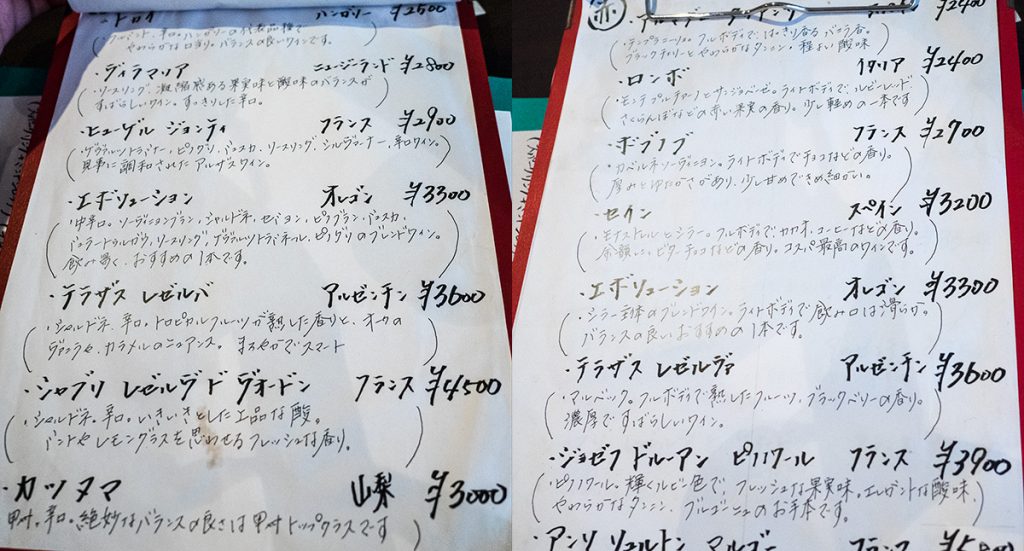 ハンガリー ¥2500
やわらかな口当り。バランスの良いワインです。
・ディラマリア ニュージーランド ¥2800
・リースリング、凝縮感ある果実味と酸味のバランスが
すばらしいワイン。すっきりした辛口。
・ヒューゲル ジョンティ フランス ¥2900
・ゲヴュルツトラミナー、ピノグリ、ミュスカ、リースリング、シルヴァーナー、辛口ワイン。
見事に調和されたアルザスワイン。
・エボリューション オレゴン ¥3300
・中辛口。ソーヴィニヨンブラン、シャルドネ、セミヨン、ピノブラン、ミュスカ、
ミュラートゥルガウ、リースリング、ゲヴュルツトラミネール、ピノグリのブレンドワイン。
飲み易く、おすすめの1本です。
・テラザス レゼルバ アルゼンチン ¥3600
・シャルドネ、辛口。トロピカルフルーツが熟した香りと、オークの
ヴァニラや、カラメルのニュアンス。まろやかでスマート
・シャブリ レゼルヴ ド ヴォードン フランス ¥4500
・シャルドネ。辛口。いきいきとした上品な酸。
ミントやレモングラスを思わせるフレッシュな香り。
・カツヌマ 山梨 ¥3000
甲州。辛口。絶妙なバランスの良さは甲州トップクラスです
赤 ¥2400
・テンプラニーリョ。フルボディで、はっきり香るバラ香。
ブラックチェリーとやわらかなタンニン・程よい酸味
・ロンボ イタリア ¥2400
・モンテプルチアーノとサンジョベーゼ。ライトボディで、ルビーレッド
さくらんぼなどの赤い果実の香り。少し軽めの一本です
・ボブノブ フランス ¥2700
・カベルネソーヴィニヨン。ライトボディでチョコなどの香り。
厚みとゆたかさがあり、少し甘めできめ細かい。
・セイン スペイン ¥3200
・モナストレルとシラー。フルボディでカカオ、コーヒーなどの香り。
余韻に、ビターチョコなどの香り。コスパ最高のワインです。
・エボリューション オレゴン ¥3300
・シラー主体のブレンドワイン。ライトボディで飲み口は滑らか。
バランスの良いおすすめの1本です。
・テラザス レゼルヴァ アルゼンチン ¥3600
・マルベック。フルボディで熟したフルーツ、ブラックベリーの香り。
濃厚ですばらしいワイン。
・ジョゼフ ドルーアン ピノノワール フランス ¥3900
・ピノノワール。輝くルビー色で、フレッシュな果実味。エレガントな酸味、
やわらかなタンニン、ブルゴーニュのお手本です。